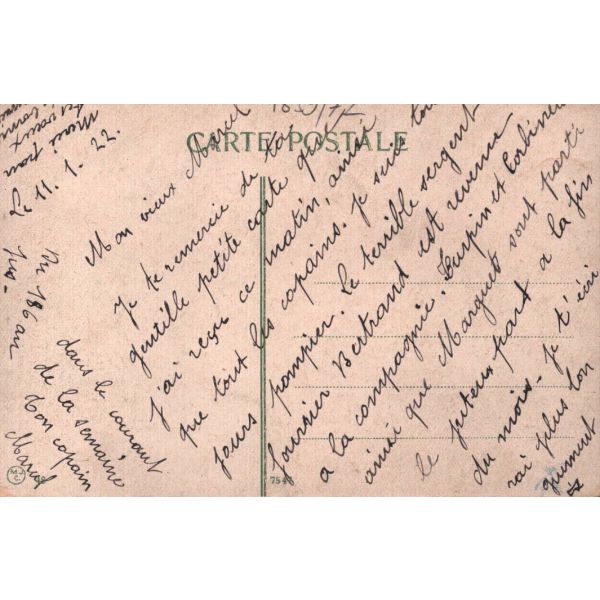 CARTE POSTALE
11.1.22.
Mon vieux Marcel
Je te remercie de ta
gentille petite carte que
j'ai reçu ce matin, ainsi
que tout les copains. Je suis tou
jours pompier. Le terrible sergent
fournier Bertrand est revenu
a la compagnie. Turpin et
ainsi que Marguet sont parti
le juteux part a la fin
du mois. Je t'écri
rai plus lon
guement
dans le courant
de la semaine
Ton copain
Marcel
Merci pour
M.J.
C.
754